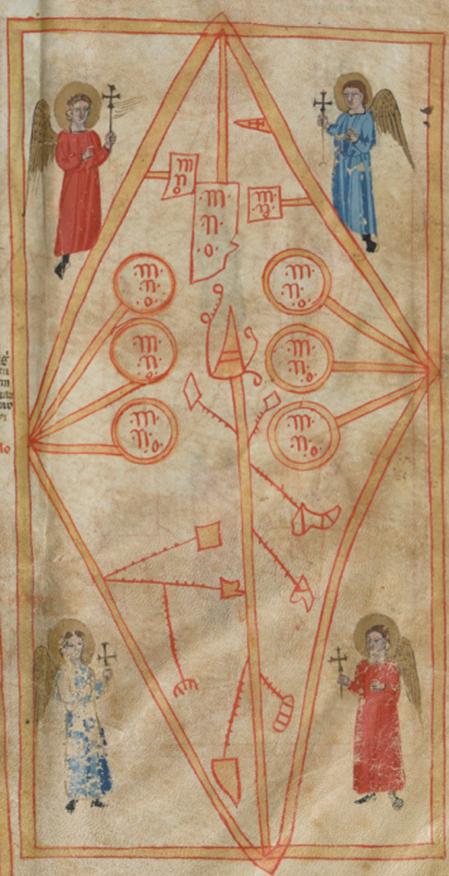 m
n
o
.m.
.n.
.o.
.m.
.n.
o
.m.
.n.
.o.
.m.
.n.
.o.
.m.
.n.
.o.
.m.
.n.
.o.
.m.
.n.o.
.m.
.n.o.